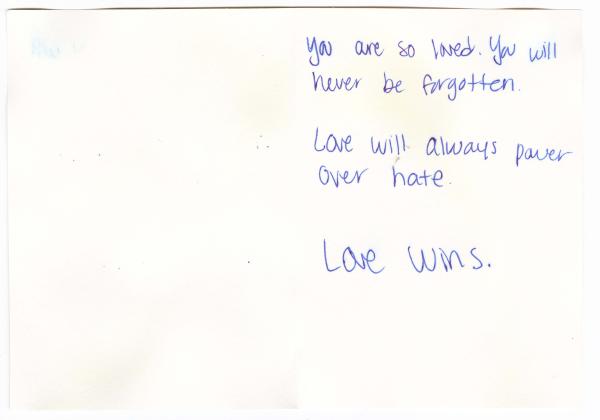 You are so loved. You will
never be forgotten.
Love will always power
over hate.
Love wins.